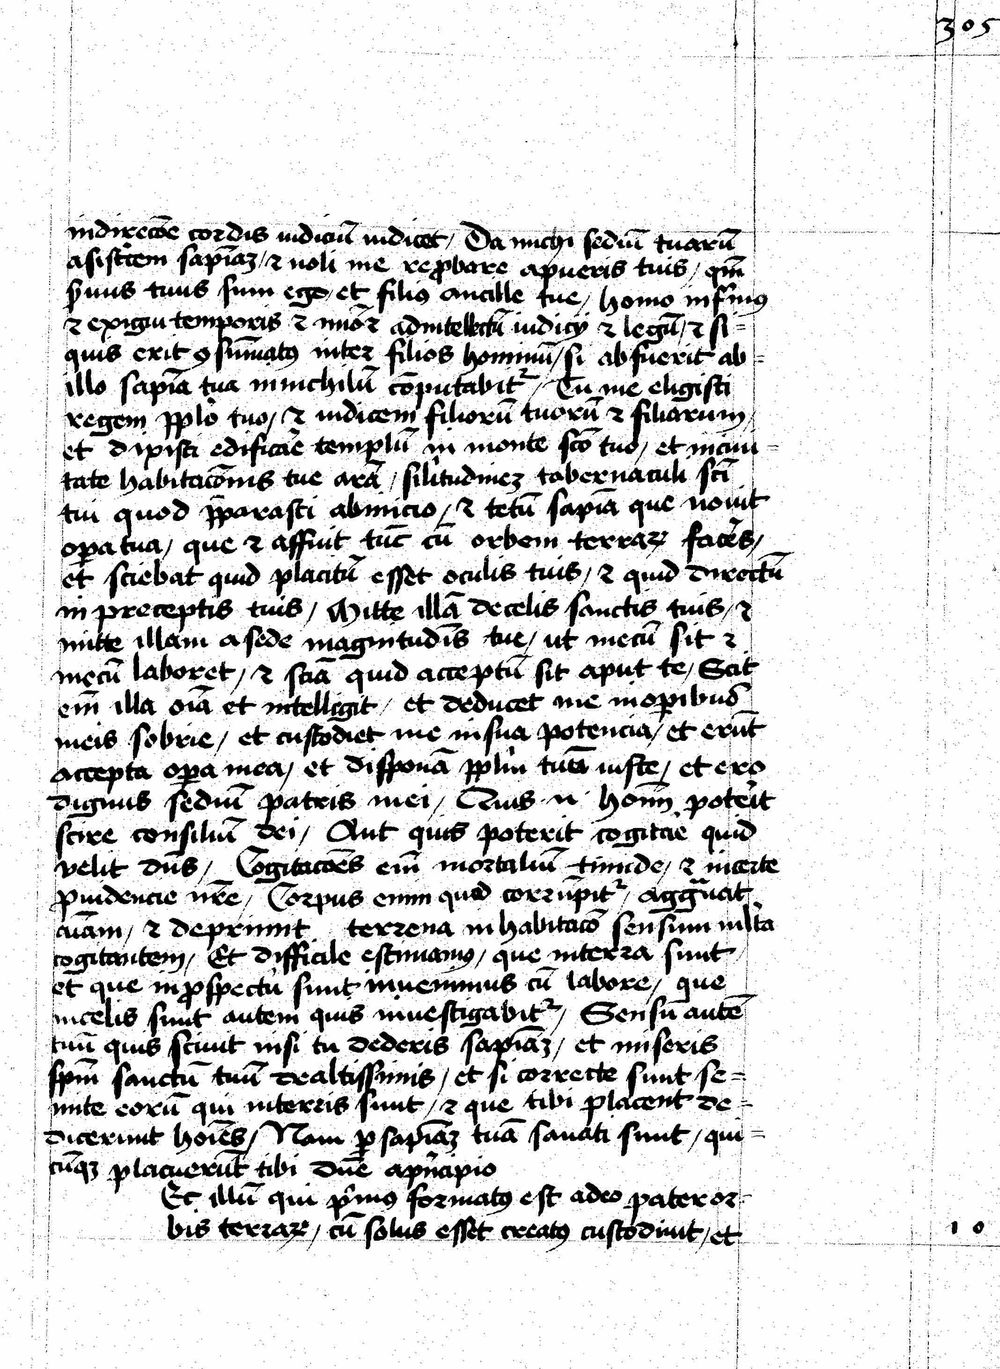 305
indirecc̄oe cordis iudiciū iudicet / Da michi sediū tuarū
asistrcem sapiaꝫ / ⁊ noli me reꝓbare apueris tuis / qm̄
ẜuus tuus sum ego / et filiꝰ ancille tue / homo infirmꝰ
⁊ exigui temporis ⁊ mīor adintellectū iudicij ⁊ legū / ⁊ si=
quis erit ꝯsūmatꝰ inter filios hominū / si abfuerit ab=
illo sapiā tua innichilū cōputabitᷣ / Tu me eligisti
regem pp̄lo tuo / ⁊ iudicem filiorū tuorū ⁊ filiarum /
et dixisti edificar̄e templū in monte sc̄o tuo / et inciui=
tate habitac̄onis tue arā / sil̄itudineꝫ tabernaculi sc̄i
tui quod p̄parasti abinicio / ⁊ tecū sapiā que nouit
oꝑa tua / que ⁊ affuit tūc cū orbem terraꝝ facēs /
et sciebat quid placitū esset oculis tuis / ⁊ quid directū
in preceptis tuis / Mitte illā decelis sanctis tuis / ⁊
mitte illam asede magnitudīs tue / ut mecū sit ⁊
mecū laboret / ⁊ sciā quid acceptū sit aput te / Scit
em̄ illa oīa et intelligit / et deducet me inoꝑibus
meis sobrie / et custodiet me insua potencia / et erūt
accepta oꝑa mea / et disponā pp̄lm tuū iuste / et ero
dignus sediū patris mei / Quis n̄ hoīm poterit
scire consiliū dei / Aut quis poterit cogitar̄e quid
velit dn̄s / Cogitac̄oes em̄ mortaliū timide / ⁊ incerte
ꝓuidencie nr̄e / Corpus enim quod corrūpitᷣ / aggrauat
aīam / ⁊ deprimit terrena inhabitac̄o sensum ml̄ta
cogitantem / Et difficile estimamꝰ / que interra sunt
et que inꝓspectu sunt inuenimus cū labore / que
incelis sunt autem quis inuestigabitᷣ / Sensū autē
tuū quis sciuit nisi tu dederis sapiaꝫ / et miseris
sp̄m sanctū tuū dealtissimis / et si correcte sunt se=
mite eorū qui interris sunt / ⁊ que tibi placent de=
dicerunt hoīes / Nam ꝑ sapiaꝫ tuā sanati sunt / qui=
cūqꝫ placuerūt tibi dn̄e aprīcipio
Et illū qui primꝰ formatꝰ est adeo pater or=
bis terraꝝ / cū solus esset creatꝰ custodiuit / et
10